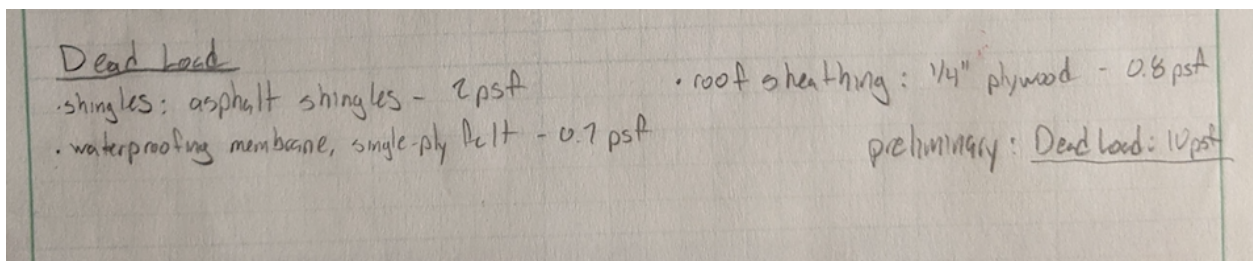 Dead Load
·shingles: asphalt shingles - 2psf
· waterproofing membrane, single-ply felt - 0.7 psf
· roof sheathing: 1/4" plywood - 0.8 psf
preliminary: Dead Load: 10psf